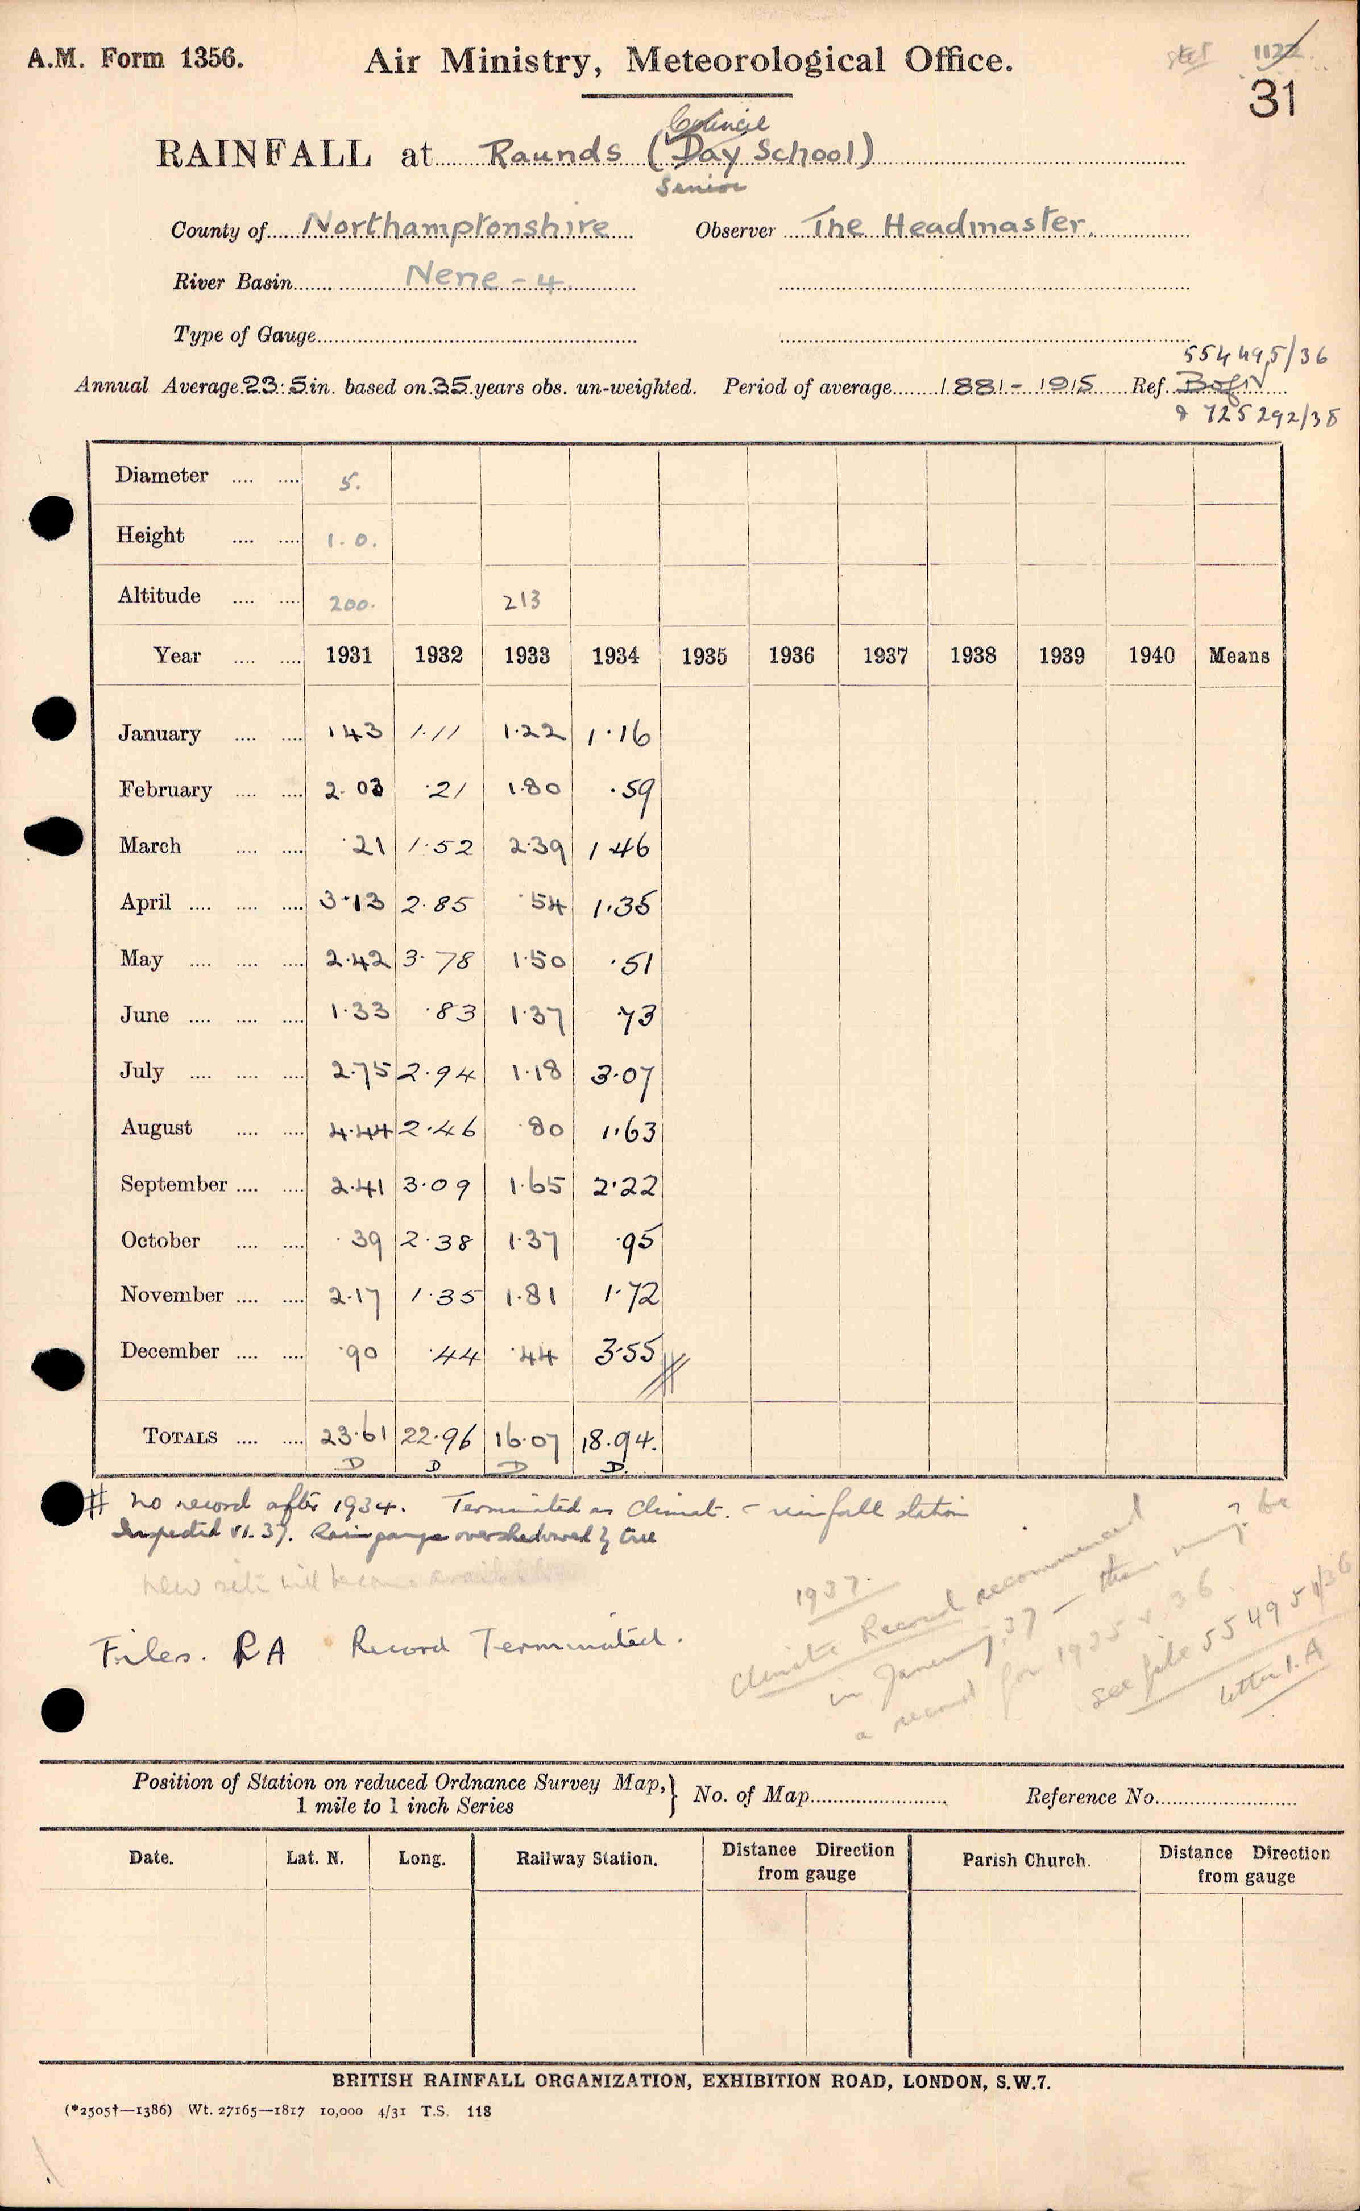 A.M. Form 1356. Air Ministry, Meteorological Office. 1122
31
Council
RAINFALL at Raunds (Day School)
Senior
County of Northamptonshire Observer The Headmaster.
River Basin Nene - 4
Type of Gauge
554495/36
Annual Average 23.5 in. based on 35 years obs. un-weighted. Period of average 1881 - 1915 Ref.
& 725292/38
Diameter 5.
Height 1. 0.
Altitude 200. 213
Year 1931 1932 1933 1934 1935 1936 1937 1938 1939 1940 Means
January 1.43 1.11 1.22 1.16
February 2.03 .21 1.80 .59
March .21 1.52 2.39 1.46
April 3.13 2.85 .54 1.35
May 2.42 3.78 1.50 .51
June 1.33 .83 1.37 .73
July 2.75 2.94 1.18 3.07
August 4.44 2.46 .80 1.63
September 2.41 3.09 1.65 2.22
October .39 2.38 1.37 .95
November 2.17 1.35 1.81 1.72
December .90 .44 .44 3.55 #
TOTALS 23.61 22.96 16.07 18.94.
D D D D.
# No record after 1934. Terminated as Climat. - rainfall station
Inspected VI. 37. Raingauge overshadowed by tree
new site will become
1937.
Climate Record recommended
in January 37 - there may be
a record for 1935 & 36
see file 554951/36
letter 1.A
Files. RA Record Terminated.
Position of Station on reduced Ordnance Survey Map, } No. of Map Reference No.
1 mile to 1 inch Series
Date. Lat. N. Long. Railway Station. Distance Direction from gauge Parish Church. Distance Direction from gauge
BRITISH RAINFALL ORGANIZATION, EXHIBITION ROAD, LONDON, S.W.7.
(*2505†—1386) Wt. 27165—1817 10,000 4/31 T.S. 118